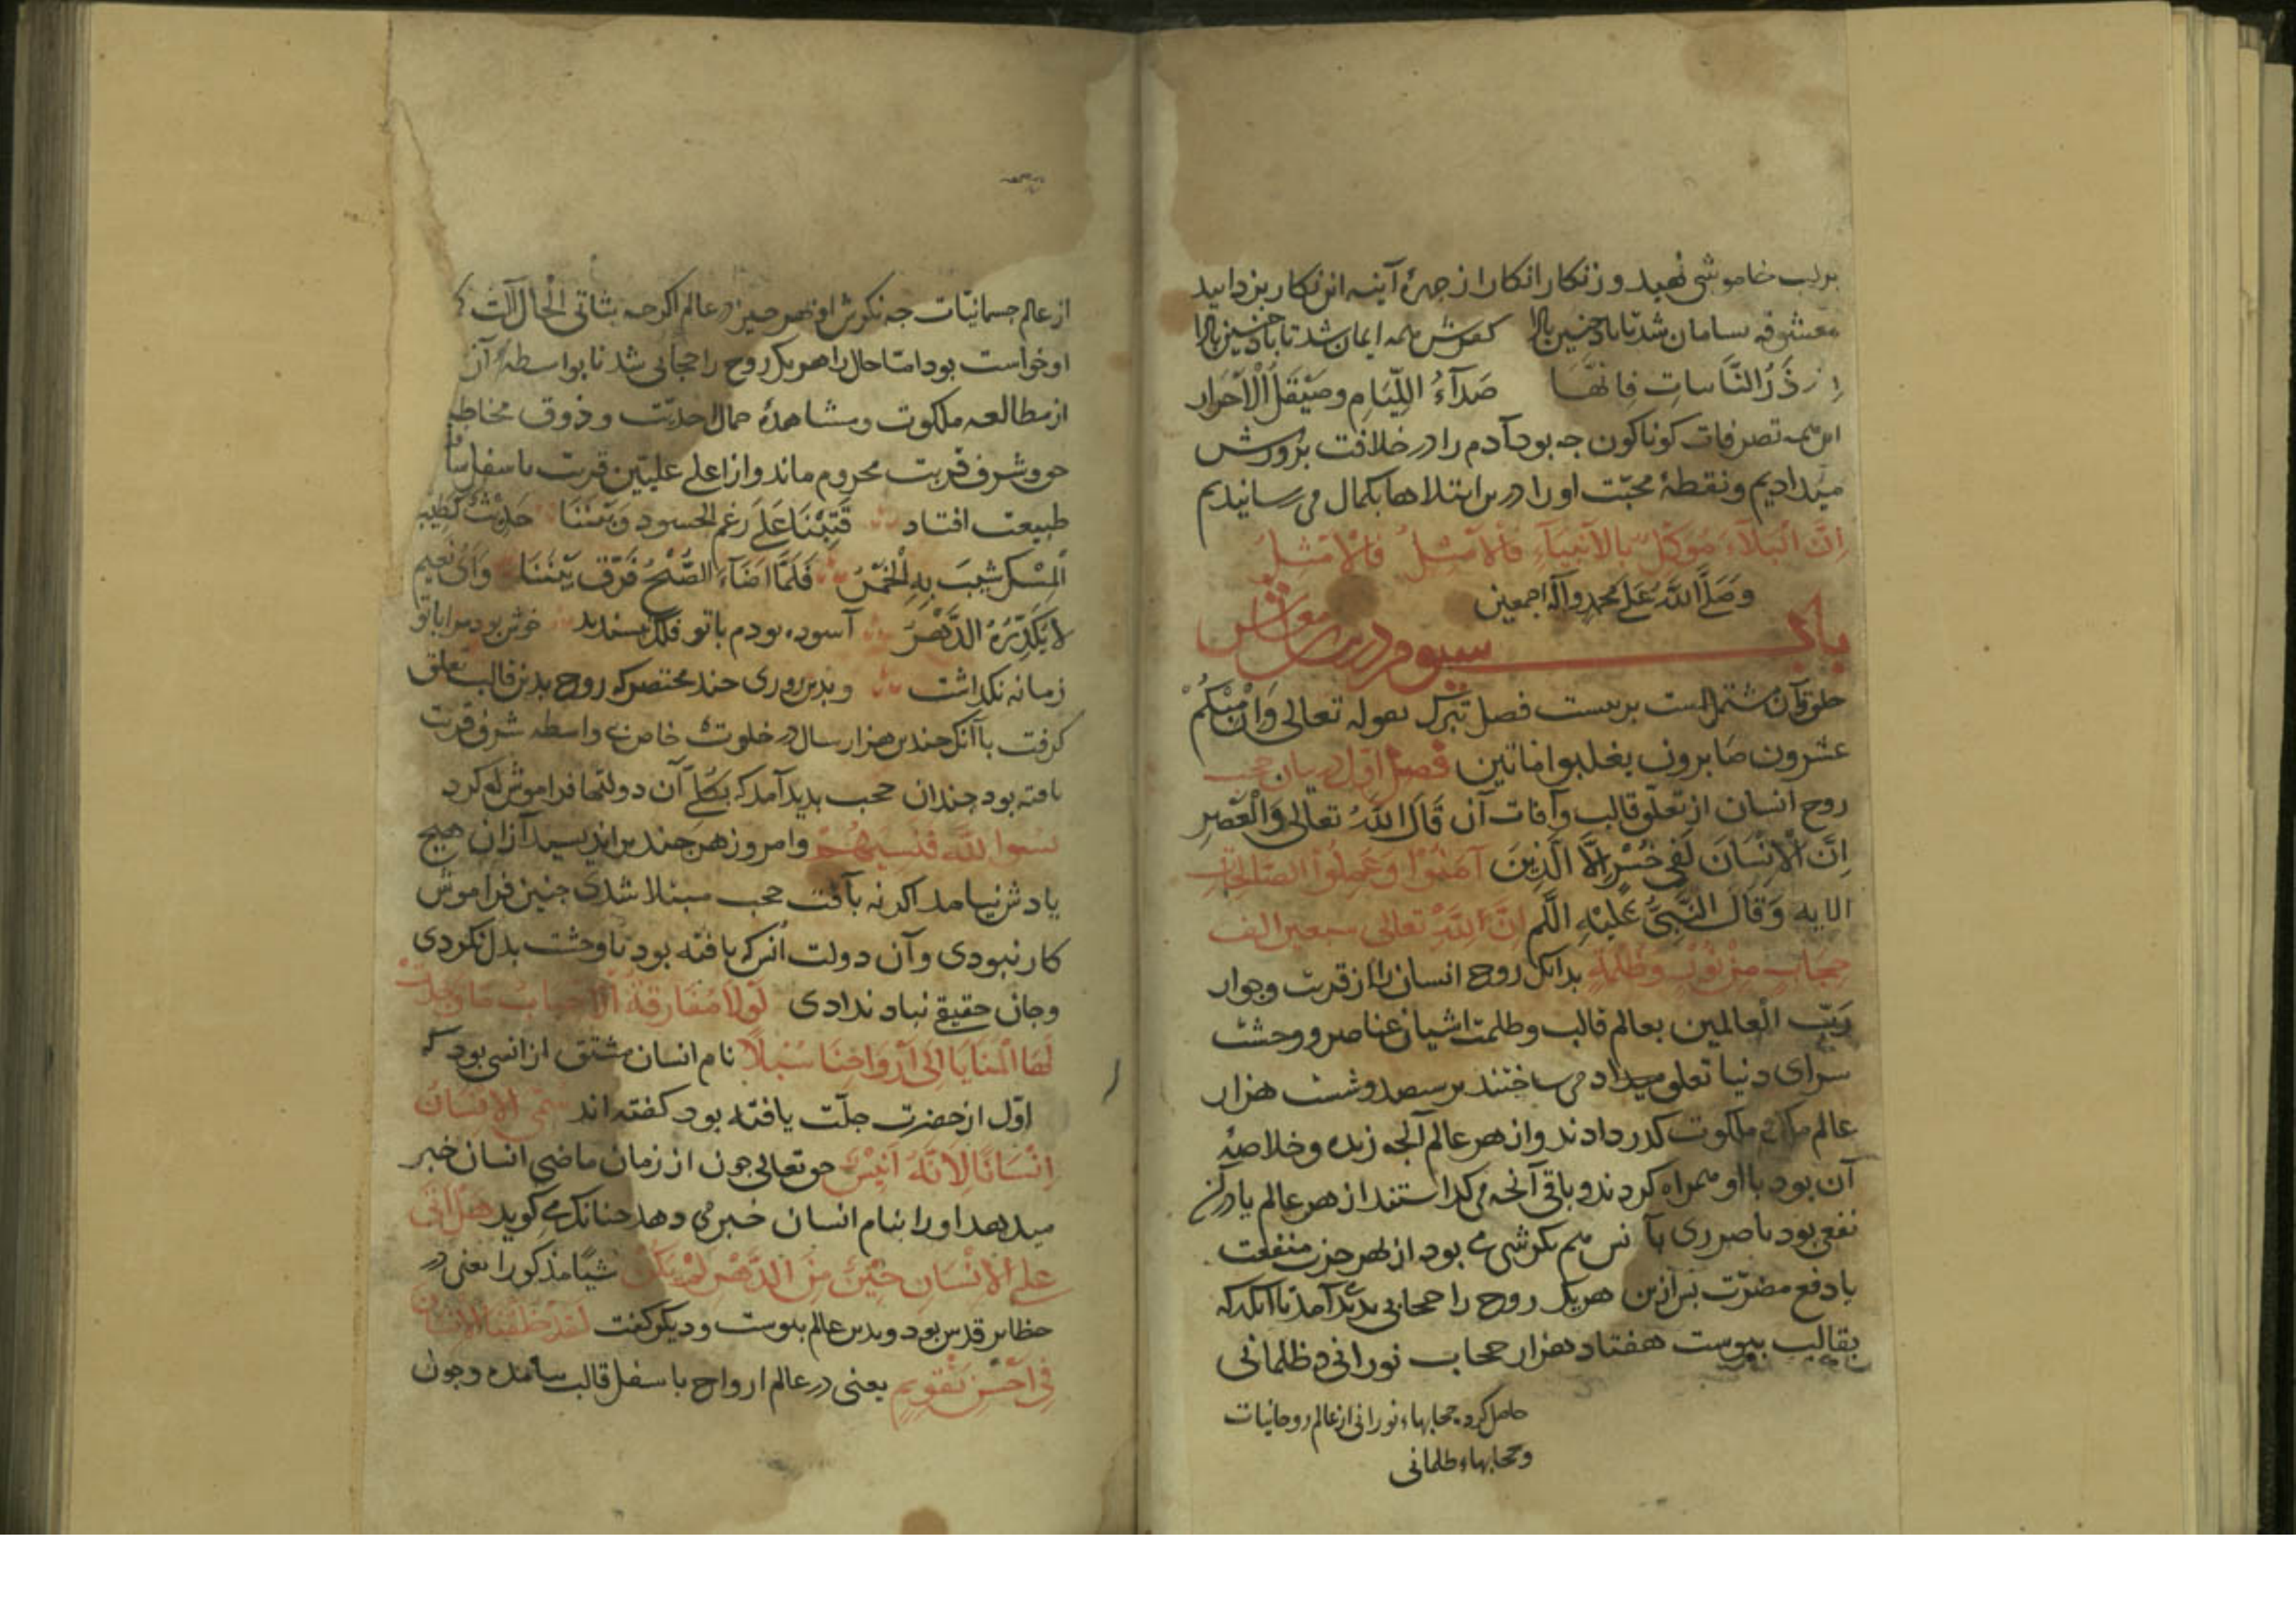 بر لب خاموشی نهید و زنکار انکار از چهرهٔ آینه این کار بزدایید
معشوقه بسامان شد تا باد چنین بادا کفرش همه ایمان شد تا باد چنین بادا
ذر النائبات فانها صداء اللیام وصیقل الاحرار
این همه تصرفات کوناکون جه بود آدم را در خلافت پرورش
میدادیم و نقطهٔ محبّت او را درین ابتلاها بکمال می رسانیدیم
اِنَّ البَلآءَ مُوَکَّلٌ بالاَنبِیآءِ فالاَمثلُ فالاَمثلُ
وَصَلَّی اللّهُ عَلی محمدٍ وآله اجمعین
باب سیوم در معاش
خلق وآن مشتملست بر بیست فصل تبرک بقوله تعالی وَاِن مِنکُم
عشرون صَابرون یغلبوا مائتین فصل اوّل در بیان حجب
روح انسان از تعلّق قالب وآفات آن قَالَ اللّهُ تعالی وَالعَصرِ
اِنَّ الاِنسَانَ لَفِی خُسرٍ اِلَّا الَّذِینَ آمَنُوا وَعَمِلُوا الصَّالِحَاتِ
الایه وَقَالَ النَّبیُّ عَلَیْهِ السلم اِنَّ لِلّهِ تعالی سبعین الف
حِجَابٍ مِن نُورٍ وَظُلمَةٍ بدانک روح انسان را از قربت وجوار
رَبّ العالمین بعالم قالب وظلمت اشیان عناصر و وحشت
سرای دنیا تعلق می ساختند بر سیصد وشست هزار
عالم ملک و ملکوت کذر دادند واز هر عالم آنجه زبده وخلاصهٔ
آن بود با او همراه کردند و باقی آنجه می کذاشتند از هر عالم یا در آن
نفعی بود یا ضرری با آنش هم نکرشی می بود از بهر جذب منفعت
یا دفع مضرّت پس ازین هریک روح را حجابی بدید آمد تا آنکه که
بقالب پیوست هفتاد هزار حجاب نورانی و ظلمانی
حاصل کرد حجابهاء نورانی از عالم روحانیات
وحجابهاء ظلمانی
از عالم جسمانیّات جه نکرش او بهر جیز در عالم اکرجه بثانی الحال آلت
او خواست بود امّا حال را هریک روح را حجابی شد تا بواسطهٔ آن
از مطالعه ملکوت ومشاهدهٔ جمال احدیّت و ذوق مخاطبه
حق وشرف قربت محروم ماند واز اعلی علیین قربت باسفل سا
طبیعت افتاد فَبِتنَا عَلَی رَغمِ الحسود وَبَینَنَا حَدِیثٌ کَطِیبِ
المِسکِ شِیبَ بِهِ الخَمرُ فَلَمَّا اَضَآءَ الصُّبحُ فَرَّقَ بَینَنَا وَاَیُّ نَعیمٍ
لا یُکَدِّرُهُ الدَّهرُ آسوده بودم با تو فلک نپسندید خوش بود مرا با تو
زمانه نکذاشت و بدین روزی جند مختصر که روح بدین قالب تعلق
کرفت با آنک جندین هزار سال در خلوت خاص بی واسطه شرف قربت
یافته بود جندان حجب بدید آمد که بکلّی آن دولتها فراموش کرد
نسوا اللّه فنسیهُم وامروز هر جند براندیشد از آن هیج
یادش نیامد اکر نه بآفت حجب مبتلا شدی جنین فراموش
کار نبودی وآن دولت اُنس که یافته بود با وحشت بدل نکردی
وجان حقیقی بباد ندادی لَولا مُفَارقَةُ الاَحبابِ مَا وَجَدَت
لَهَا المَنَایَا اِلَی اَروَاحِنَا سُبُلا نام انسان مشتق از انس بود که
اوّل از حضرت جلّت یافته بود کفته اند سُمّی الاِنسَانُ
اِنسَانًا لِاَنّهُ اَنِیسٌ حق تعالی جون از زمان ماضی انسان خبر
میدهد او را بنام انسان خبر می دهد جنانک می کوید هَل اَتَی
عَلَی الاِنسَانِ حِینٌ مِنَ الدَّهرِ لَم یَکُن شیئا مذکورا یعنی در
حظایر قدس بود وبدین عالم نپیوست و دیکر کفت لَقَد خَلَقنَا الاِنسَانَ
فِی اَحسَنِ تَقویم یعنی در عالم ارواح باسفل قالب وجون